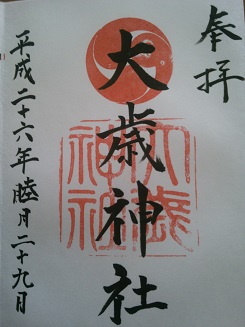 奉拝
大歳神社
大歳神社
平成二十六年睦月二十九日